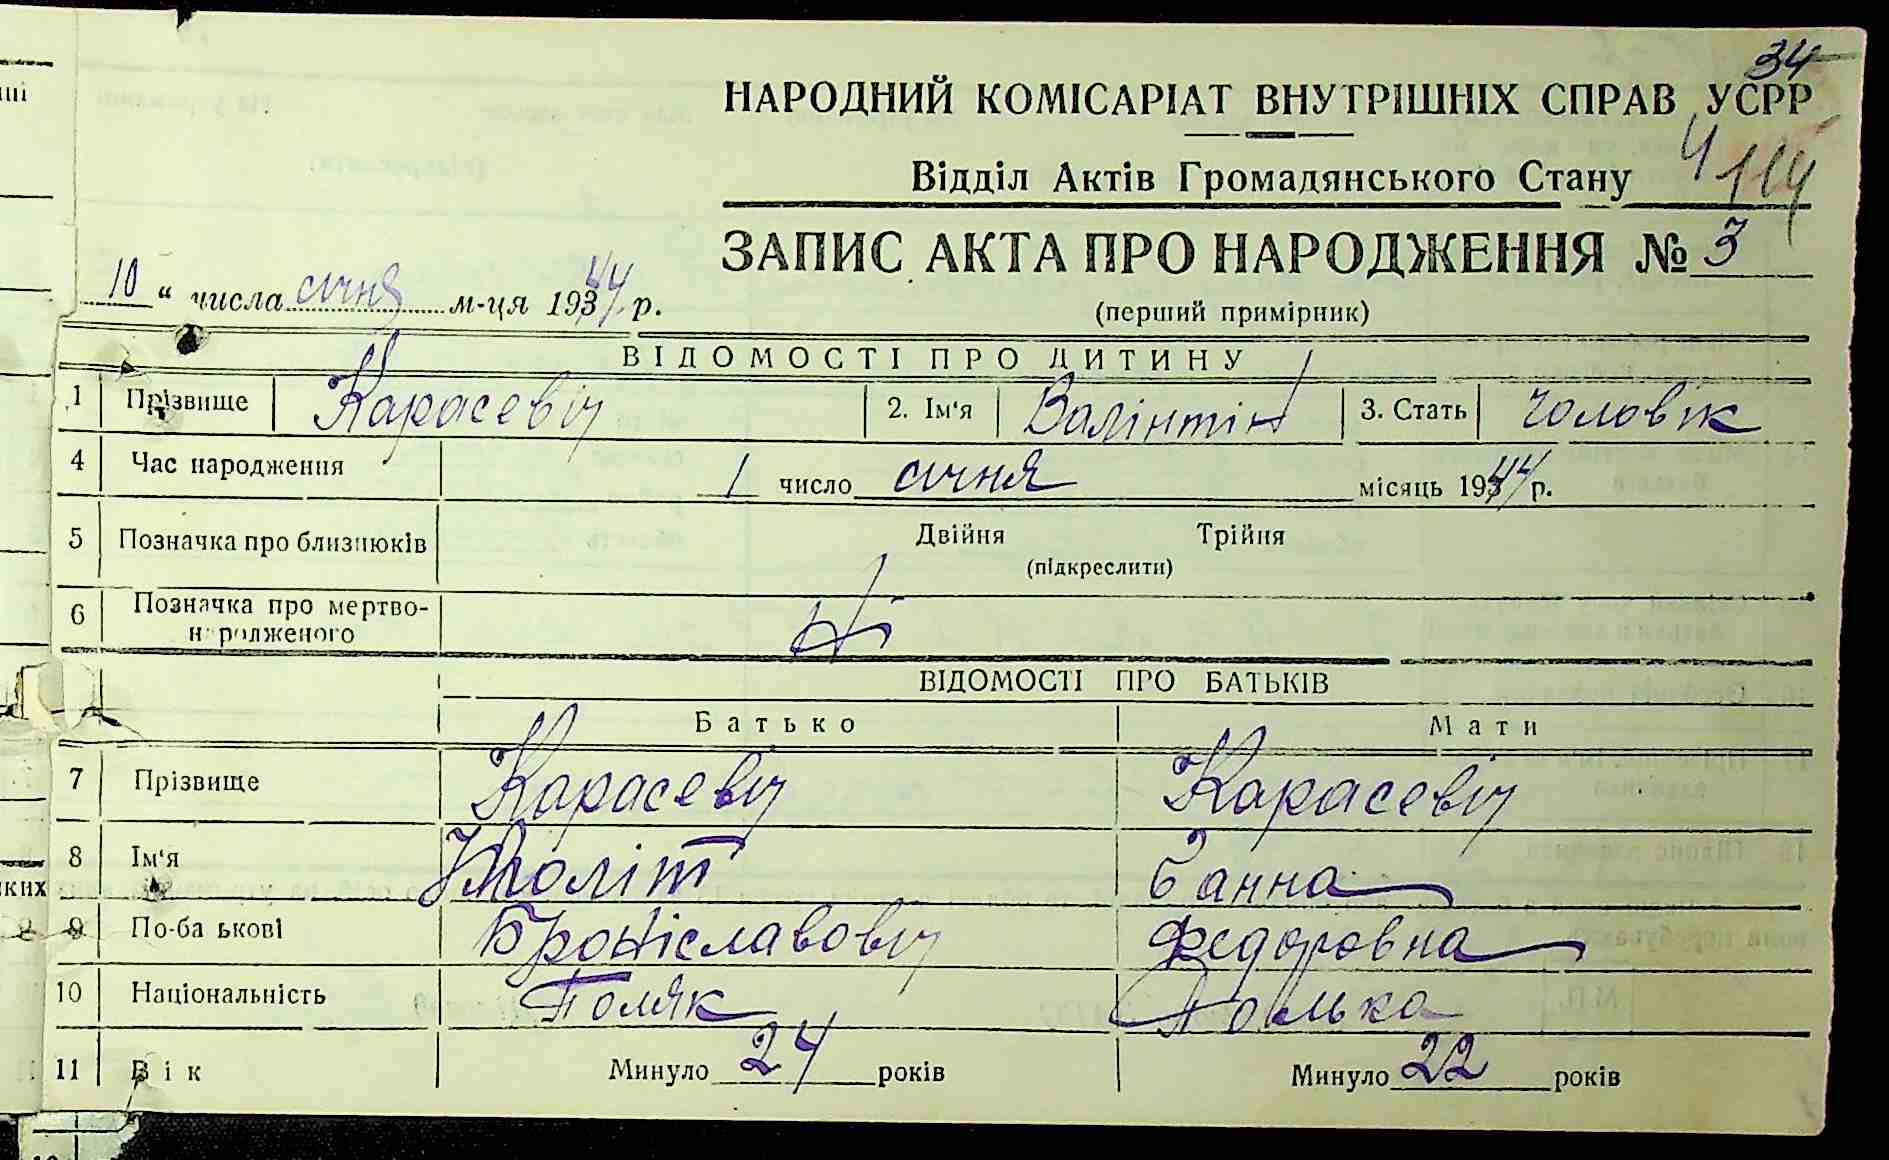 34
НАРОДНИЙ КОМІСАРІАТ ВНУТРІШНІХ СПРАВ УСРР
Відділ Актів Громадянського Стану
ЗАПИС АКТА ПРО НАРОДЖЕННЯ № 3
(перший примірник)
10 “ числа січня м-ця 1944 р.
ВІДОМОСТІ ПРО ДИТИНУ
1 Прізвище Карасевіч 2. Ім‘я Валінтін 3. Стать чоловік
4 Час народження 1 число січня місяць 1944 р.
5 Позначка про близнюків Двійня Трійня
(підкреслити)
6 Позначка про мертво-
народженого Ні
ВІДОМОСТІ ПРО БАТЬКІВ
Батько Мати
7 Прізвище Карасевіч Карасевіч
8 Ім‘я Іполіт Ганна
9 По-ба ькові Броніславовіч Федоровна
10 Національність Поляк Полька
11 Вік Минуло 24 років Минуло 22 років
ких